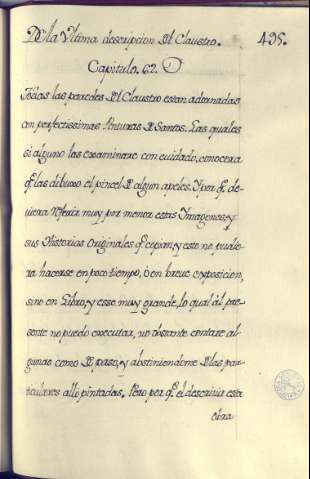 De la Ultima descripcion del Claustro. 495.
Capitulo. 62.
Todas las paredes del Claustro estan adornadas
con perfectissimas Pinturas de Santos. Las quales
si alguno las examinare con cuidado, conocera
q̃ las dibuxo el pincel de algun apeles. Y por q̃ de-
viera referir muy por menor estas Imagenes, y
sus Historias Originales q̃ copian, y esto no pudie-
ra hacerse en poco tiempo, ò en breve exposicion,
sino en Libro, y esse muy grande, lo qual al pre-
sente no puedo executar, no obstante contare al-
gunas como de paso, y absteniendome de las par-
ticulares allo pintadas. Pero por q̃ el descrivir esta
obra